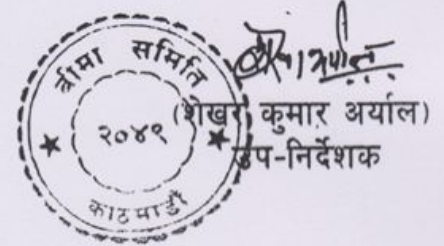 बीमा समिति
२०४९
काठमाडौं
(शेखर कुमार अर्याल)
उप-निर्देशक